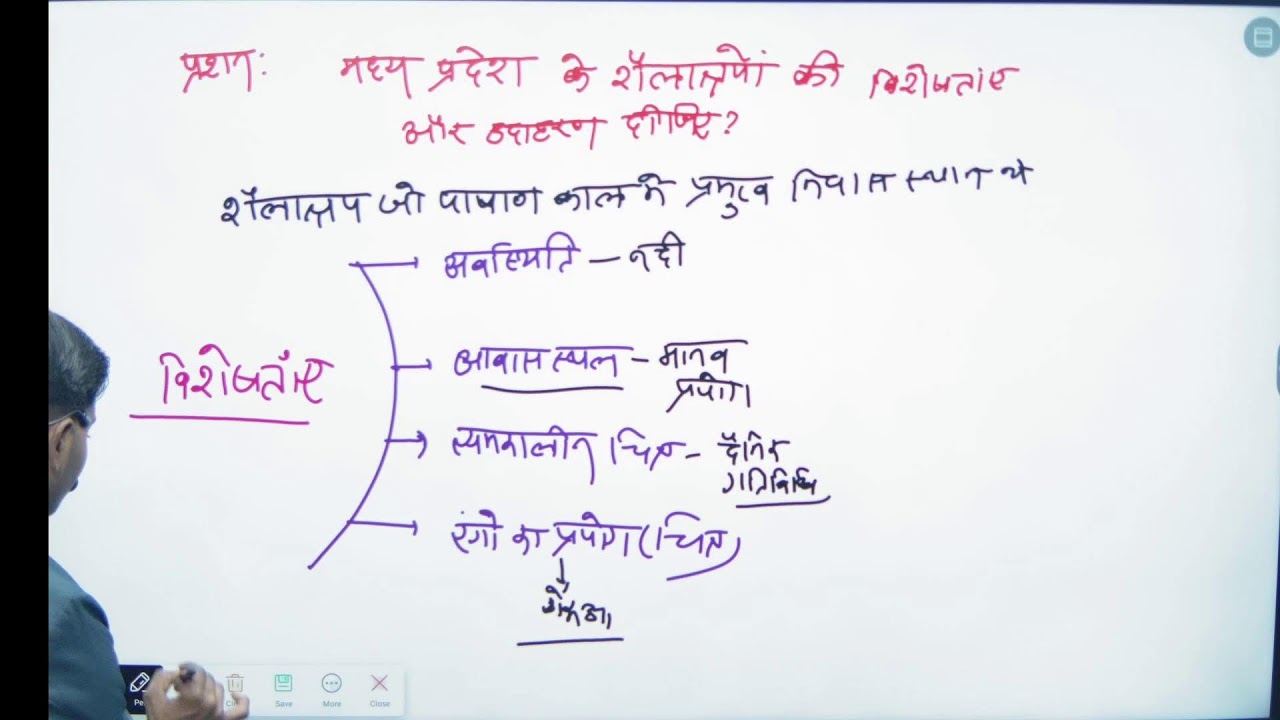 प्रश्न: मध्य प्रदेश के शैलाश्रयों की विशेषताएं
और उदाहरण दीजिए?
शैलाश्रय जो पाषाण काल मे प्रमुख निवास स्थान थे
अवस्थिति – नदी
विशेषताएँ
आवास स्थल – मानव
प्रयोग
समकालीन चित्र – दैनिक
गतिविधि
रंगो का प्रयोग (चित्र)
गेरुआ
Pe
Cl
Save
More
Close